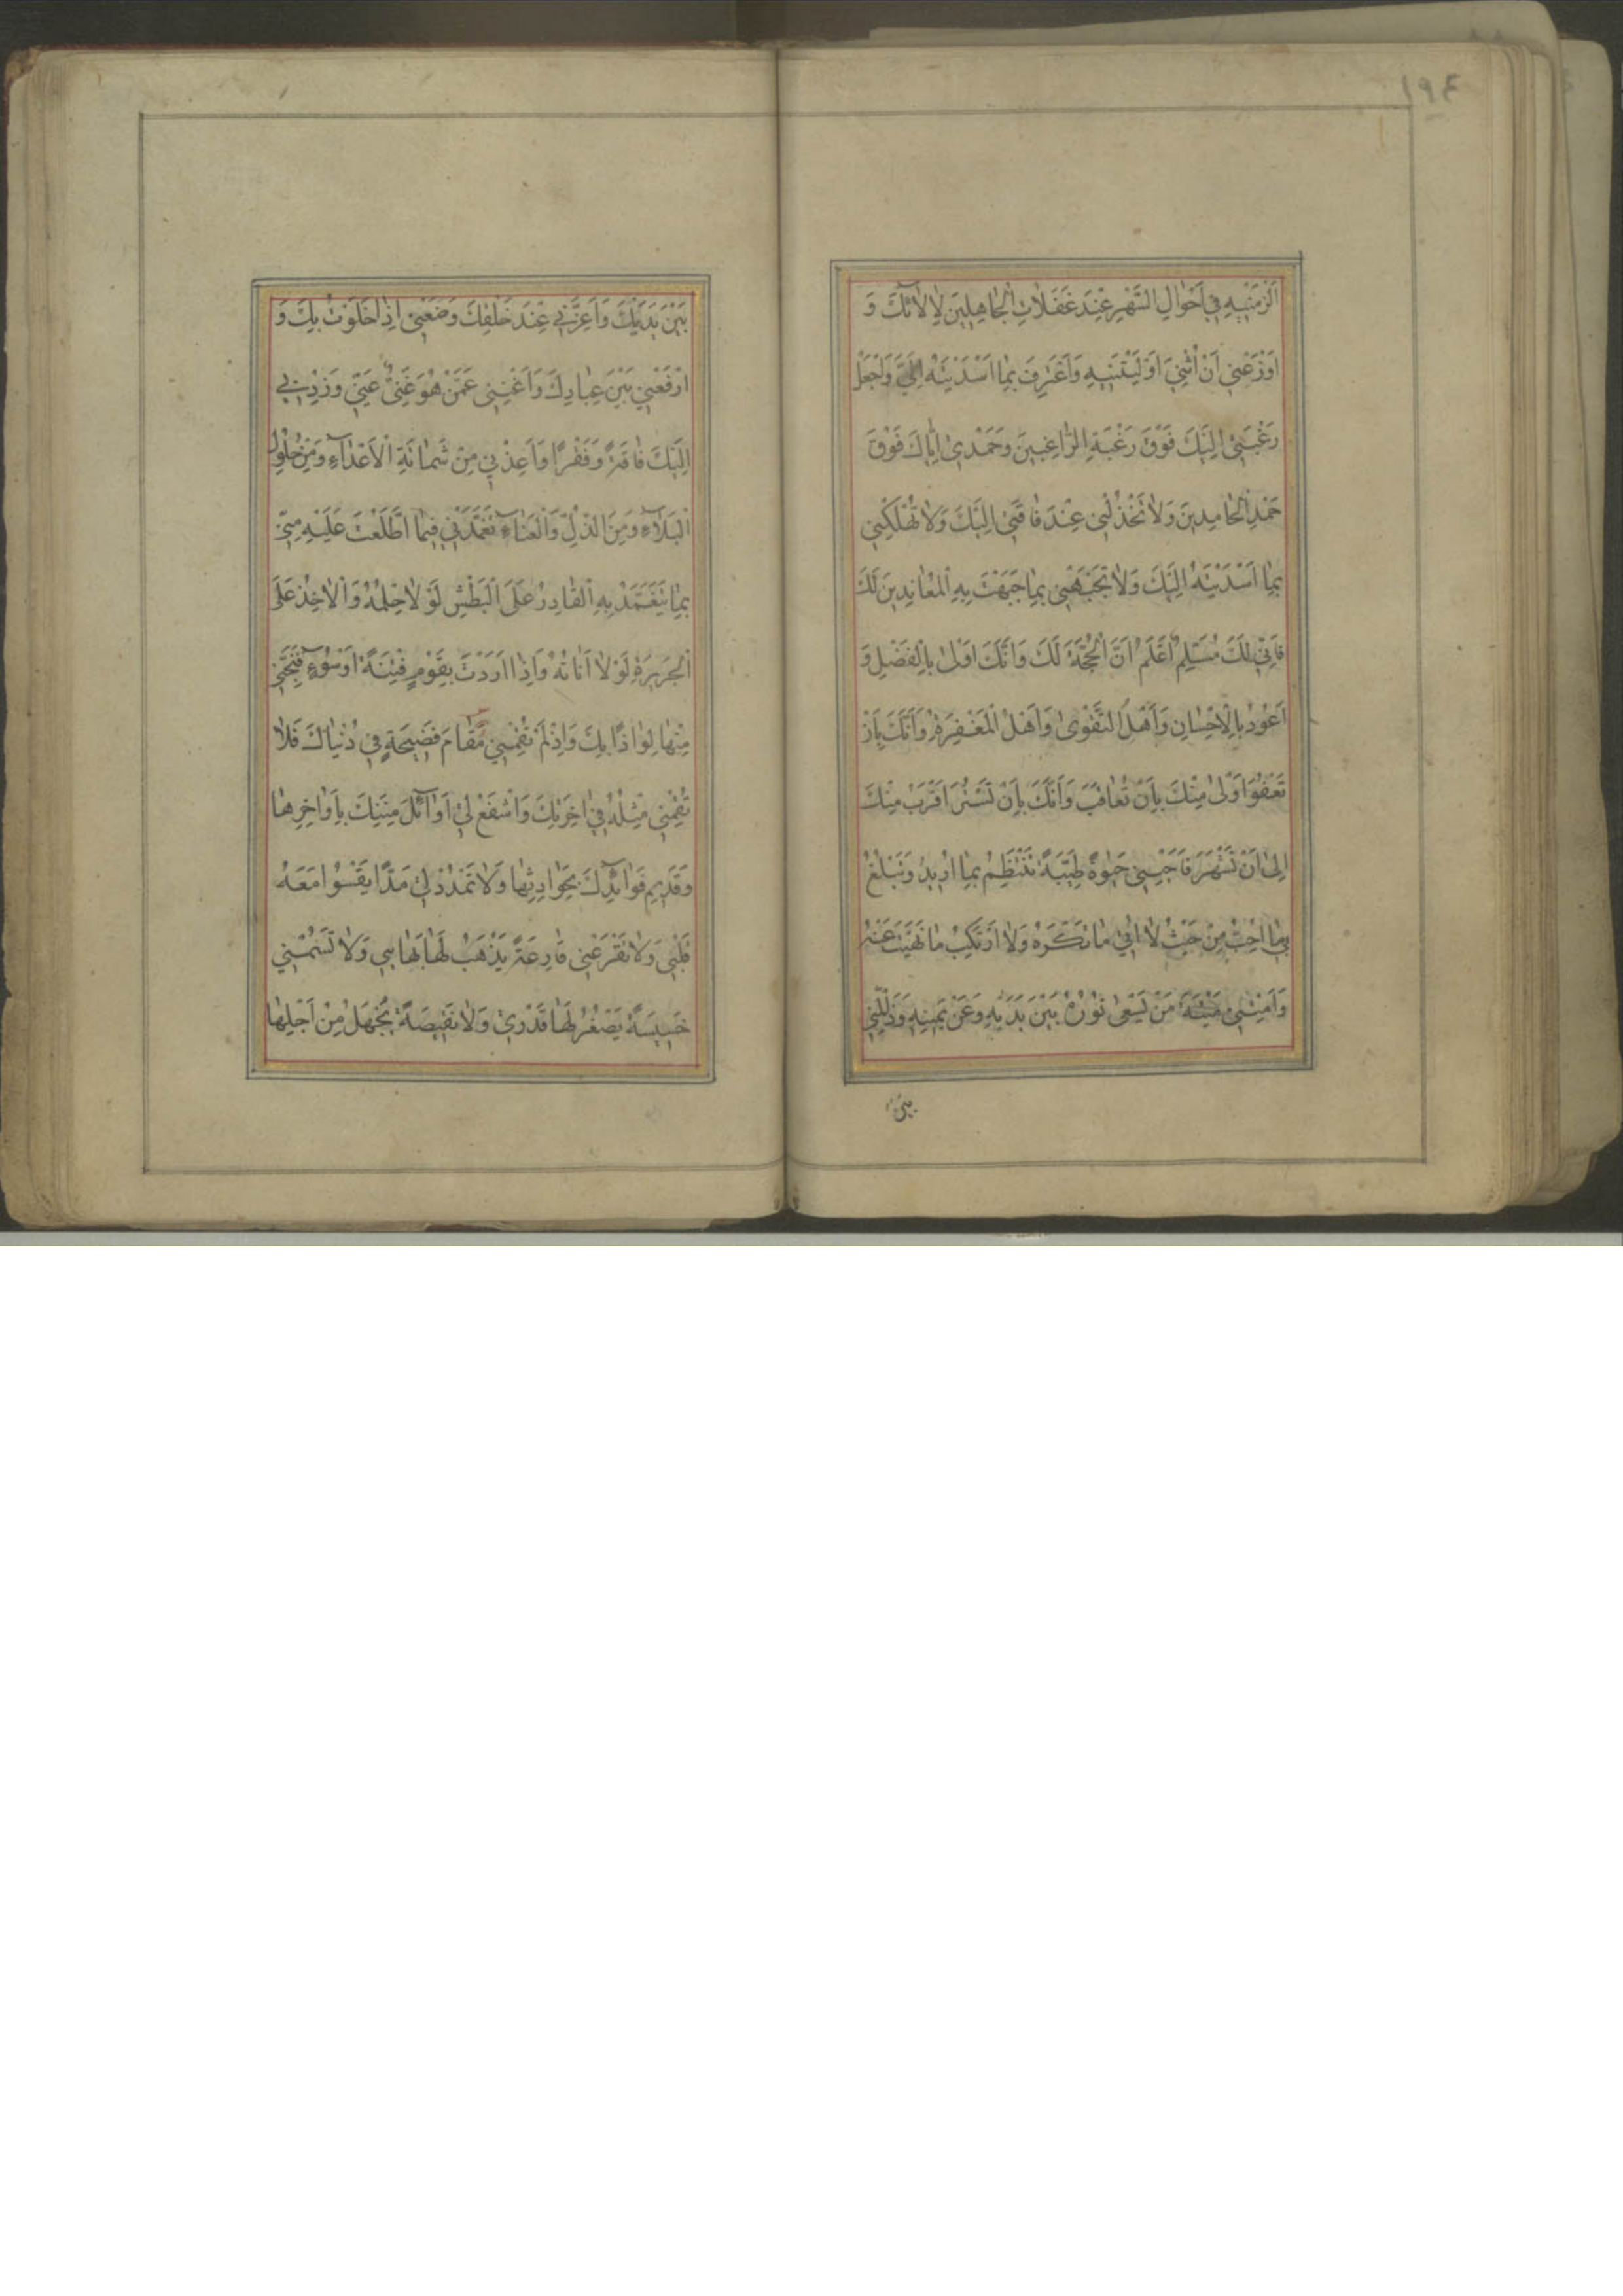 ١٩٤
اَلْزَمْتَنيهِ في اَحْوالِ السَّهْوِ عِنْدَ غَفَلاتِ الْجاهِلينَ لِاٰلآئِكَ وَ
اَوْزِعْني اَنْ اُثْنِيَ اَوْلَيْتَنيهِ وَاَعْتَرِفَ بِما اَسْدَيْتَهُ اِلَيَّ وَاجْعَلْ
رَغْبَتي اِلَيْكَ فَوْقَ رَغْبَةِ الرّاغِبينَ وَحَمْدي اِيّاكَ فَوْقَ
حَمْدِ الْحامِدينَ وَلا تَخْذُلْني عِنْدَ فاقَتي اِلَيْكَ وَلا تُهْلِكْني
بِما اَسْدَيْتُهُ اِلَيْكَ وَلا تَجْبَهْني بِما جَبَهْتَ بِهِ الْمُعانِدينَ لَكَ
فَاِنّي لَكَ مُسَلِّمٌ اَعْلَمُ اَنَّ الْحُجَّةَ لَكَ وَاَنَّكَ اَوْلى بِالْفَضْلِ وَ
اَعْوَدُ بِالْاِحْسانِ وَاَهْلُ التَّقْوى وَاَهْلُ الْمَغْفِرَةِ وَاَنَّكَ بِاَنْ
تَعْفُوَا اَوْلى مِنْكَ بِاَنْ تُعاقِبَ وَاَنَّكَ بِاَنْ تَسْتُرَ اَقْرَبُ مِنْكَ
اِلى اَنْ تَشْهَرَ فَاَحْيِني حَيٰوةً طَيِّبَةً تَنْتَظِمُ بِما اُريدُ وَتَبْلُغُ
بي ما اُحِبُّ مِنْ حَيْثُ لا اٰتي ما تَكْرَهُ وَلا اَرْتَكِبُ ما نَهَيْتَ عَنْهُ
وَاَمِتْني ميتَةَ مَنْ يَسْعى نُورُهُ بَيْنَ يَدَيْهِ وَعَنْ يَمينِهِ وَذَلِّلْني
بين
بَيْنَ يَدَيْكَ وَاَعِزَّني عِنْدَ خَلْقِكَ وَضَعْني اِذا خَلَوْتُ بِكَ وَ
ارْفَعْني بَيْنَ عِبادِكَ وَاَغْنِني عَمَّنْ هُوَ غَنِيٌّ عَنّي وَزِدْني
اِلَيْكَ فاقَةً وَفَقْرًا وَاَعِذْني مِنْ شَماتَةِ الْاَعْدآءِ وَمِنْ حُلُولِ
الْبَلآءِ وَمِنَ الذُّلِّ وَالْعَنآءِ تَغَمَّدْني فيما اطَّلَعْتَ عَلَيْهِ مِنّي
بِما يَتَغَمَّدُ بِهِ الْقادِرُ عَلَى الْبَطْشِ لَوْلا حِلْمُهُ وَالْاٰخِذُ عَلَى
الْجَريرَةِ لَوْلا اَناتُهُ وَاِذا اَرَدْتَ بِقَوْمٍ فِتْنَةً اَوْ سُوٓءً فَنَجِّني
مِنْها لِواذًا بِكَ وَاِذْ لَمْ تُقِمْني مَقامَ فَضيحَةٍ في دُنْياكَ فَلا
تُقِمْني مِثْلَهُ في اٰخِرَتِكَ وَاشْفَعْ لي اَوآئِلَ مِنَنِكَ بِاَواخِرِها
وَقَديمِ فَوآئِدِكَ بِحَوادِثِها وَلا تَمْدُدْ لي مَدًّا يَقْسُوا مَعَهُ
قَلْبي وَلا تَقْرَعْني قارِعَةً يَذْهَبُ لَها بَهائي وَلا تَسُمْني
خَسيسَةً يَصْغُرُ لَها قَدْري وَلا نَقيصَةً يُجْهَلُ مِنْ اَجْلِها